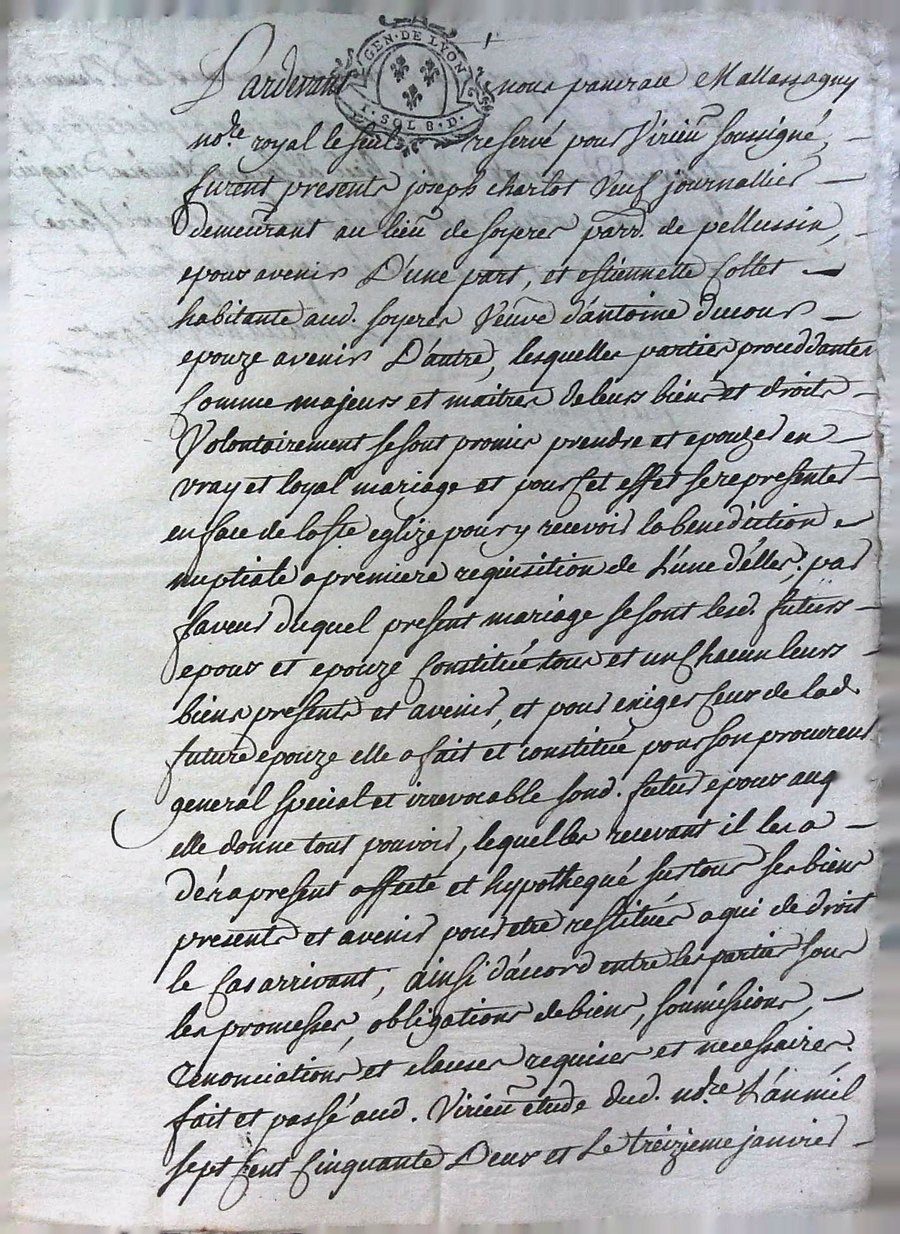 GEN·DE LYON
1. SOL 8. D.
Pardevant nous pancrace Mallassagny
no.re royal le seul reservé pour Virieu soussigné,
furent presents joseph charlot veuf journallier
demeurant au lieu de soyeres parr. de pellussin,
epoux avenir D'une part, et estiennette Collet
habitante aud. soyeres veuve d'antoine ducour
epouze avenir D'autre, lesquelles parties proceddantes
comme majeurs et maitres de leurs biens et droits
Volontairement se sont promis prendre et epouzer en
vray et loyal mariage et pour cet effet se representer
en face de la s.te eglize pour y recevoir la benediction
nuptiale a premiere requisition de L'une d'elles; par
faveur duquel present mariage se sont lesd. futurs
epoux et epouze constitué tous et un chacun leurs
biens presents et avenir, et pour exiger ceux de lad.
future epouze elle a fait et constitué pour son procureur
general special et irrevocable sond. futur epoux auq
elle donne tout pouvoir, lequel les recevant il les a
dés a present affecté et hypothequé sur tous ses biens
presents et avenir pour etre restitués a qui de droit
le cas arrivant, ainsi d'accord entre les parties sous
les promesses, obligations de biens, soumissions,
renonciations et clauses requises et necessaires.
fait et passé aud. Virieu étude dud. no.re L'an mil
sept cent cinquante Deux et Le treizieme janvier